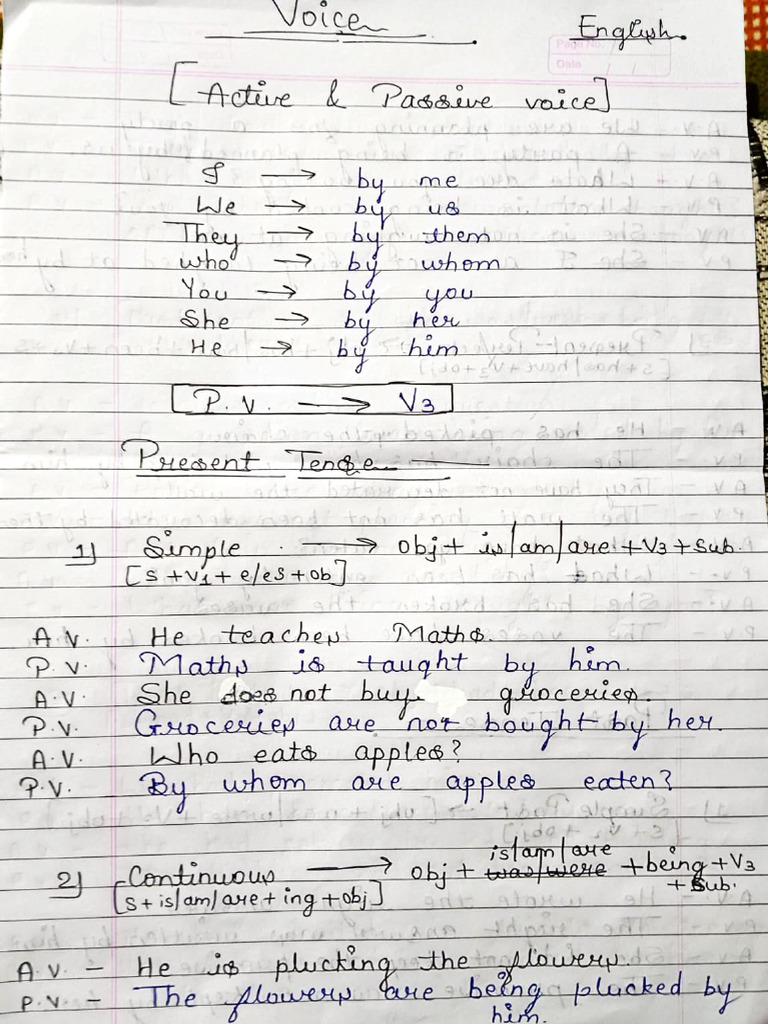 Voice
English.
Page No.
Date
[Active & Passive voice]
I → by me
We → by us
They → by them
who → by whom
You → by you
She → by her
He → by him
P.V. → V3
Present Tense
1) Simple → Obj + is/am/are + V3 + Sub.
[S + V1 + e/es + ob]
A.V. He teaches Maths.
P.V. Maths is taught by him.
A.V. She does not buy groceries.
P.V. Groceries are not bought by her.
A.V. Who eats apples?
P.V. By whom are apples eaten?
is/am/are
2) Continuous → Obj + was/were + being + V3
[S + is/am/are + ing + obj] + Sub.
A.V. – He is plucking the flowers.
P.V. – The flowers are being plucked by
him.